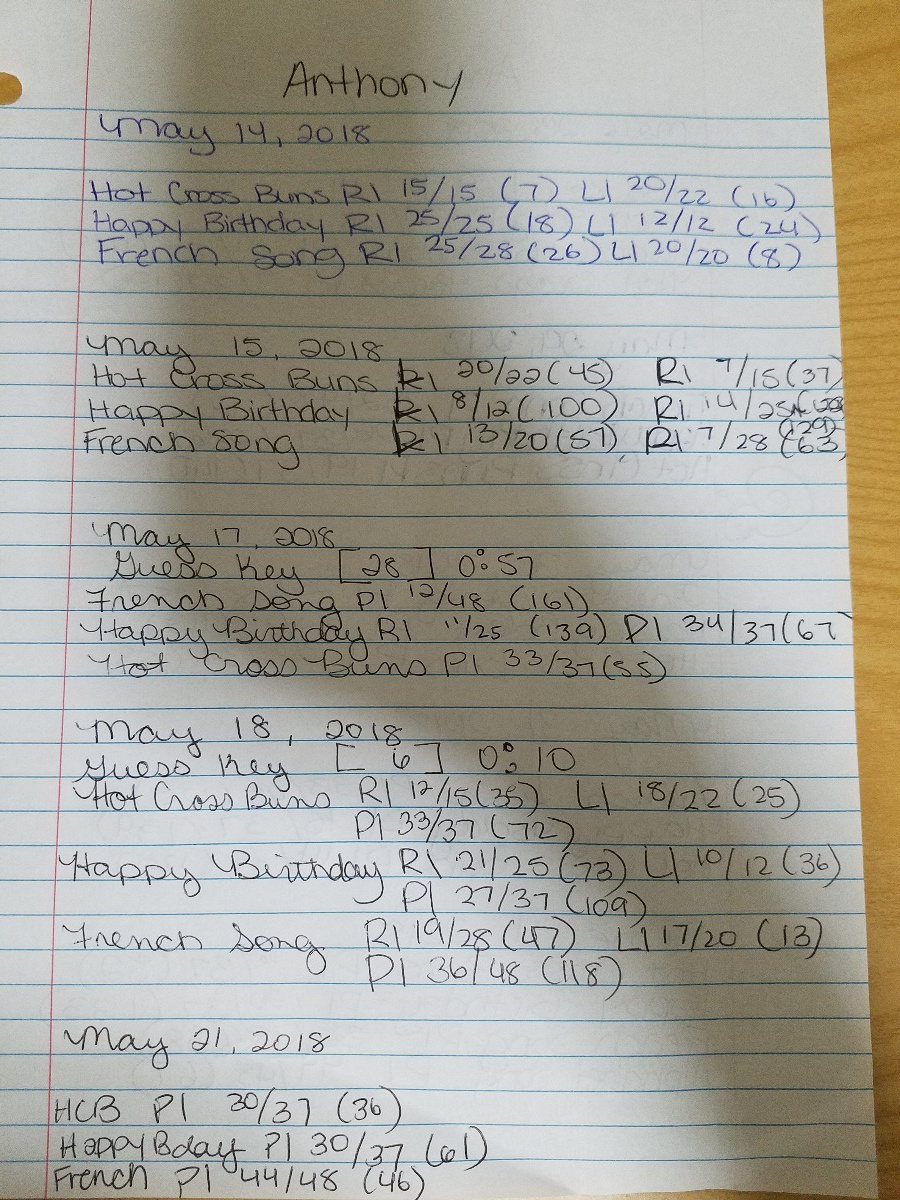 Anthony
May 14, 2018
Hot Cross Buns R1 15/15 (7) L1 20/22 (16)
Happy Birthday R1 25/25 (18) L1 12/12 (24)
French Song R1 25/28 (26) L1 20/20 (8)
May 15, 2018
Hot Cross Buns R1 20/22 (45) R1 7/15 (37)
Happy Birthday R1 8/12 (100) R1 14/25
(129)
French Song R1 13/20 (57) R1 7/28 (63)
May 17, 2018
Guess Key [28] 0:57
French Song P1 12/48 (161)
Happy Birthday R1 11/25 (139) P1 34/37 (67
Hot Cross Buns P1 33/37 (55)
May 18, 2018
Guess Key [ 6] 0:10
Hot Cross Buns R1 12/15 (35) L1 18/22 (25)
P1 33/37 (72)
Happy Birthday R1 21/25 (73) L1 10/12 (36)
P1 27/37 (109)
French Song R1 19/28 (47) L1 17/20 (13)
P1 36/48 (118)
May 21, 2018
HCB P1 30/37 (36)
Happy Bday P1 30/37 (61)
French P1 44/48 (46)